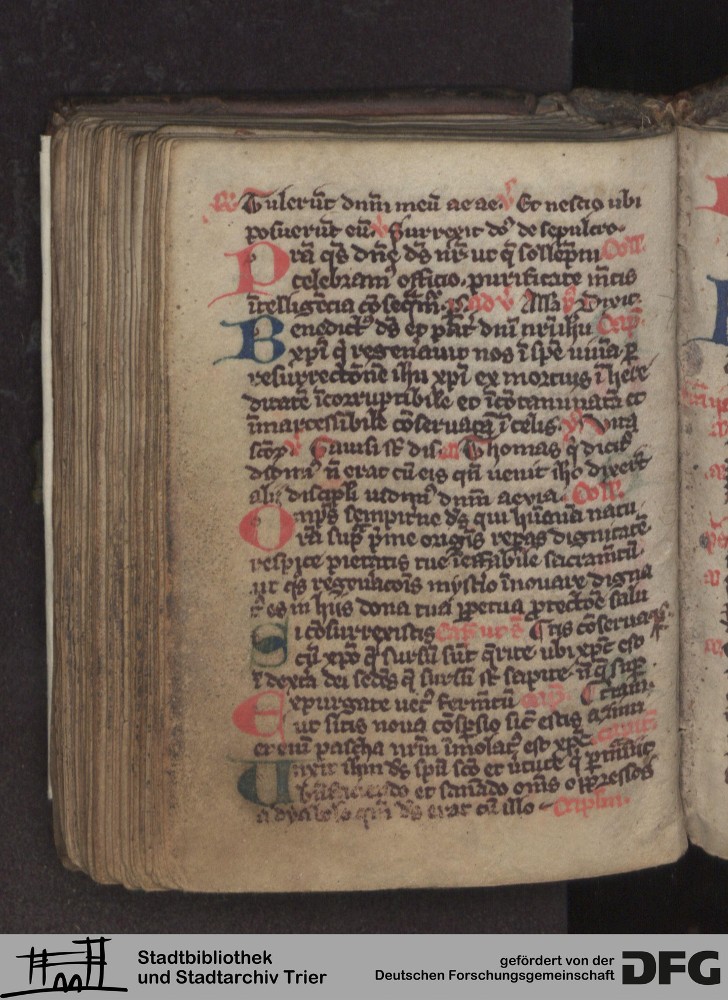 Tulerūt dn̄m meū ae ae. Et nescio ubi
posuerūt eū. Surrexit dn̄s de sepulcro.
Prā qs̄ dn̄e ds̄ nr̄ ut q̄ sollēpni Coll.
celebram⁹ officio, purificate mētis
ītelligēcia
Benedict⁹ ds̄ et pat̄ dn̄i nr̄i ihu Cap.
xpī q̄ regeñauit nos ī spē uiuā p̄
resurrectōnē ihu xpī ex mortuis ī here
ditatē īcorruptibilē et īcōtaminatā et
īmarcessibilē cōseruatā ī celis.
Gauisi sr̄ dis. Thomas q̄ dicit̄
didim⁹ n̄ erat cū eis qn̄ uenit ihc̄ dixerūt
alii discipli uidim⁹ dn̄m aeuia. Coll.
Omp̄s sempitne ds̄ qui hūanā natu
rā sup̄ p̄me origīs repas dignitatē
respice pietatis tue īeffabile sacramētū
ut qs regn̄acōis mistio īnouare digna
t⁹ es in hiis dona tua ppetua ꝓtectōe salu
Si cōsurrexistis tis cōseruā
cū xpō q̄ sursū sūt q̄rite ubi xpc̄ est
ī dextā dei sedēs q̄ sursū sr̄ sapite n̄ q̄ sup̄
Expurgate uet⁹ fermētū terram
ut sitis noua cōspsio sic̄ estis azimi
eteni pascha nr̄m īmolat⁹ est xpc̄
Unxit ihm ds̄ spū scō et uirtute q̄ p̄transiit
et sanādo om̄s oppressos
a dyabolo qm̄ ds̄ erat cū illo Capl̄m.
Stadtbibliothek
und Stadtarchiv Trier
gefördert von der
Deutschen Forschungsgemeinschaft
DFG